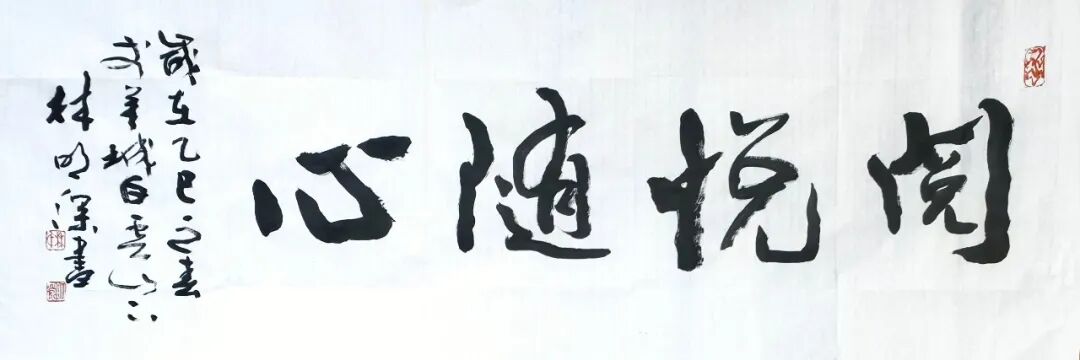 阅悦随心
岁在乙巳之春
于羊城白云山下
林明深书